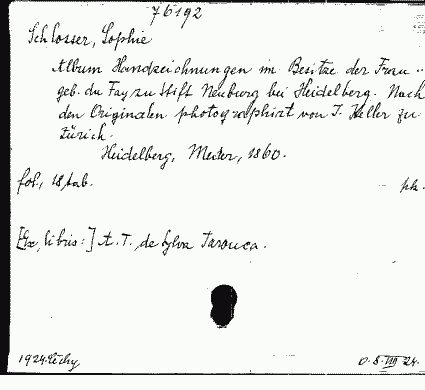 76192
Schlosser, Sophie
Album Handzeichnungen im Besitze der Frau ..
geb. du Fay zu Stift Neuburg bei Heidelberg. Nach
den Originalen photographirt von J. Keller zu
Zürich.
Heidelberg, Meder, 1860.
fol., 18 tab.
ph.
[Ex libris:] A. T. de Sylva Tarouca.
1924. Čechy
D. 8. VIII 24.